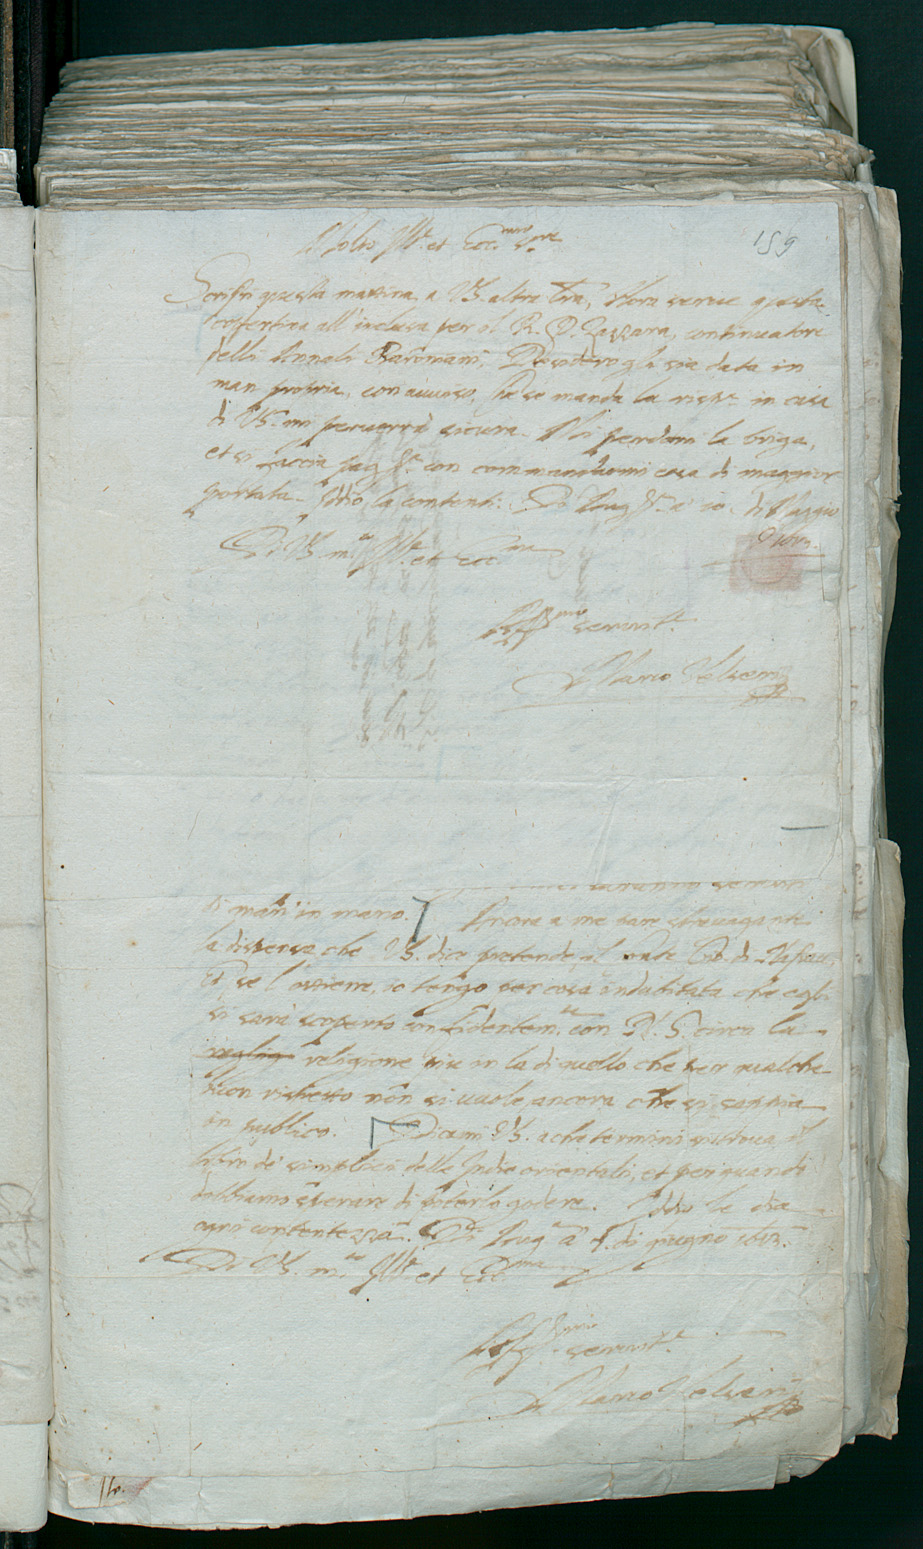 159
Molto Ill.re et ecc.mo S.re
Scrissi questa mattina a VS. altra l'ra, Hora serue questa
copertina all'inclusa per il R. P. Zazzara, continuatore
delli Annali Baromani, Desidero gli sia data in
man propria, con auuiso, se manda la risp.ta in casa
di VS. mi peruerrà sicura. Mi perdoni la briga,
et si faccia pag.to con commandarmi cosa di maggior
portata. Iddio la contenti. Di Aug.ta a' 10. di Maggio
Di VS. m.to Ill.re et ecc.ma
Aff.mo seruit.e
Marco Velseri
di man' in mano. Ancora a me pare strauagante
la dispersa che VS. dice pretende il
Et se l'ottiene, io tengo per cosa indubitata che egli
si sarà scoperto confidentem.te con N. S. circa la
religione più in là di quello che per qualche
buon rispetto non si uuole ancora che si sappia
in publico. Dicami VS. a che termini si troua il
libro de' simplici delle Indie orientali, et per quando
dobbiamo sperare di poterlo godere. Iddio le dia
ogni contentezza. Di Aug.ta a di giugno
Di VS. m.to Ill.re et Ecc.ma
Aff.mo seruit.e
Marco Velseri